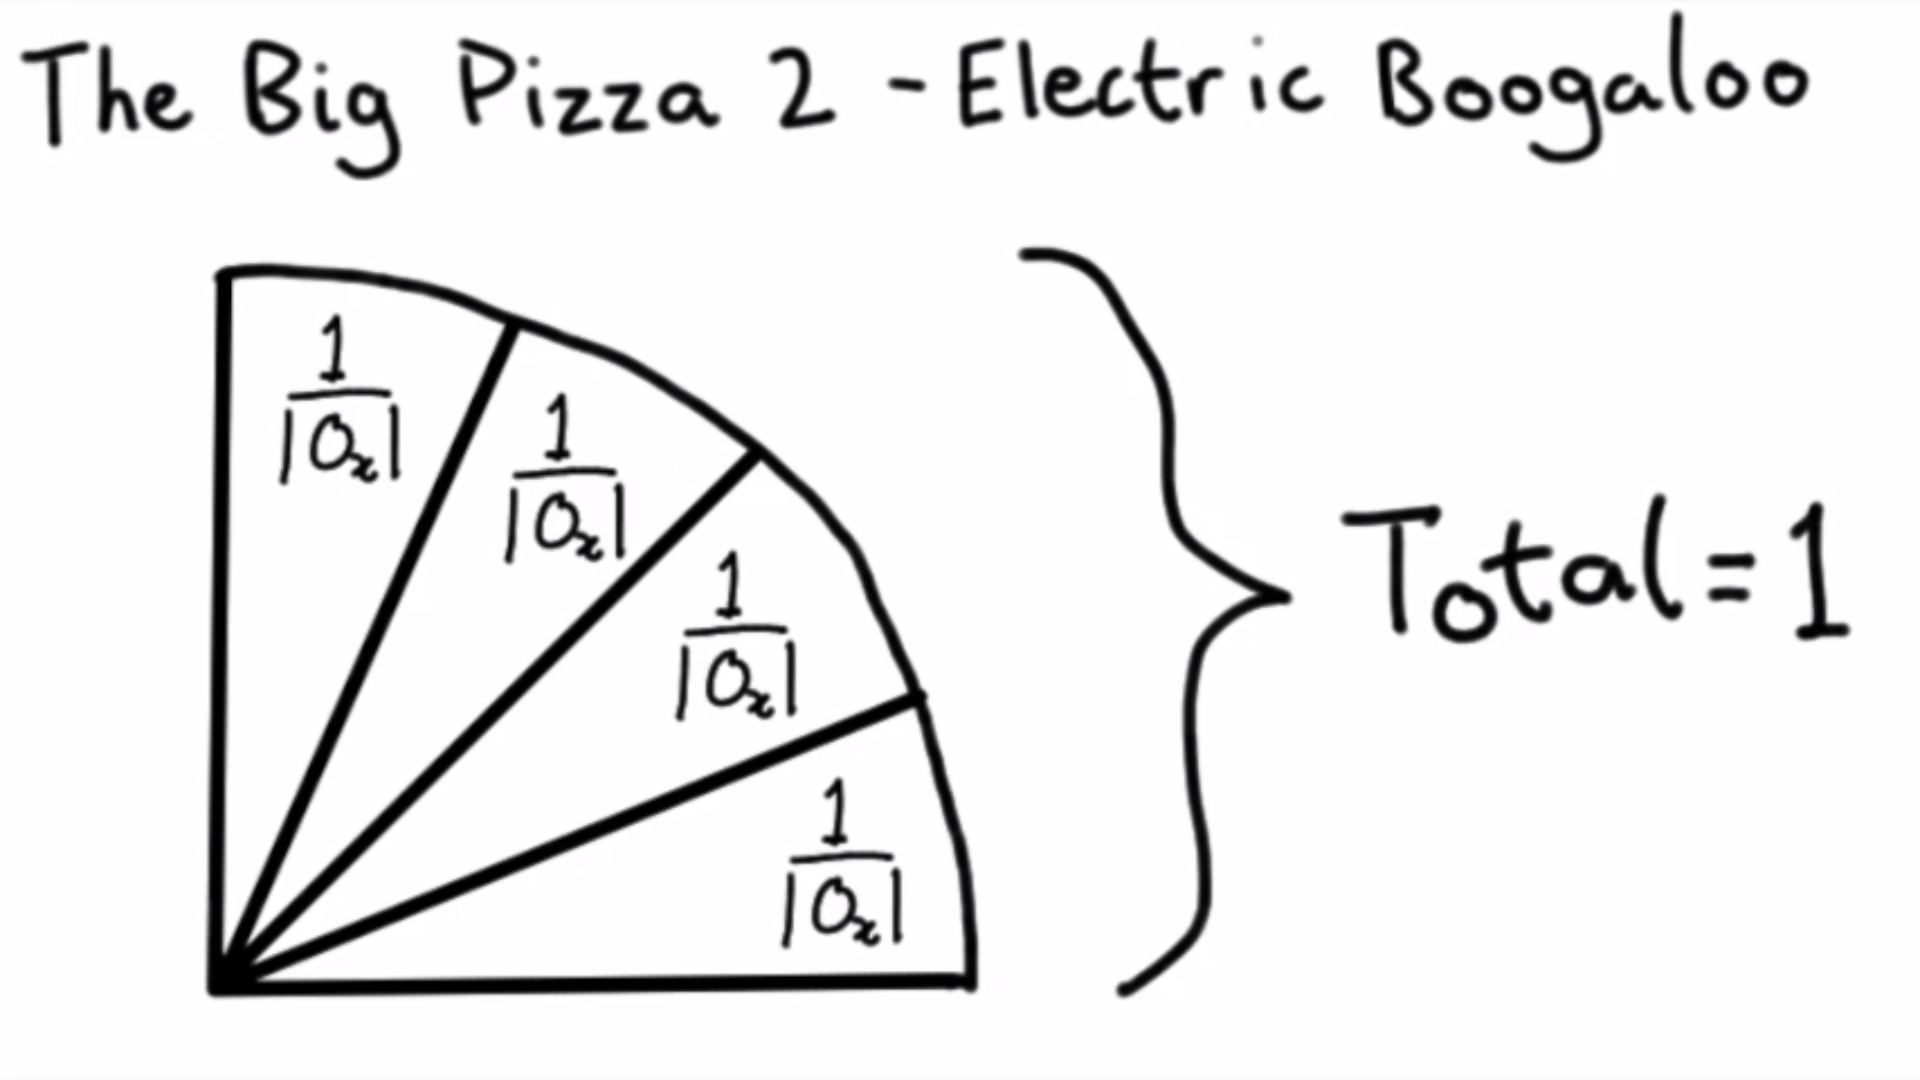 The Big Pizza 2 - Electric Boogaloo
1
|Ox|
1
|Ox|
1
|Ox|
1
|Ox|
Total = 1